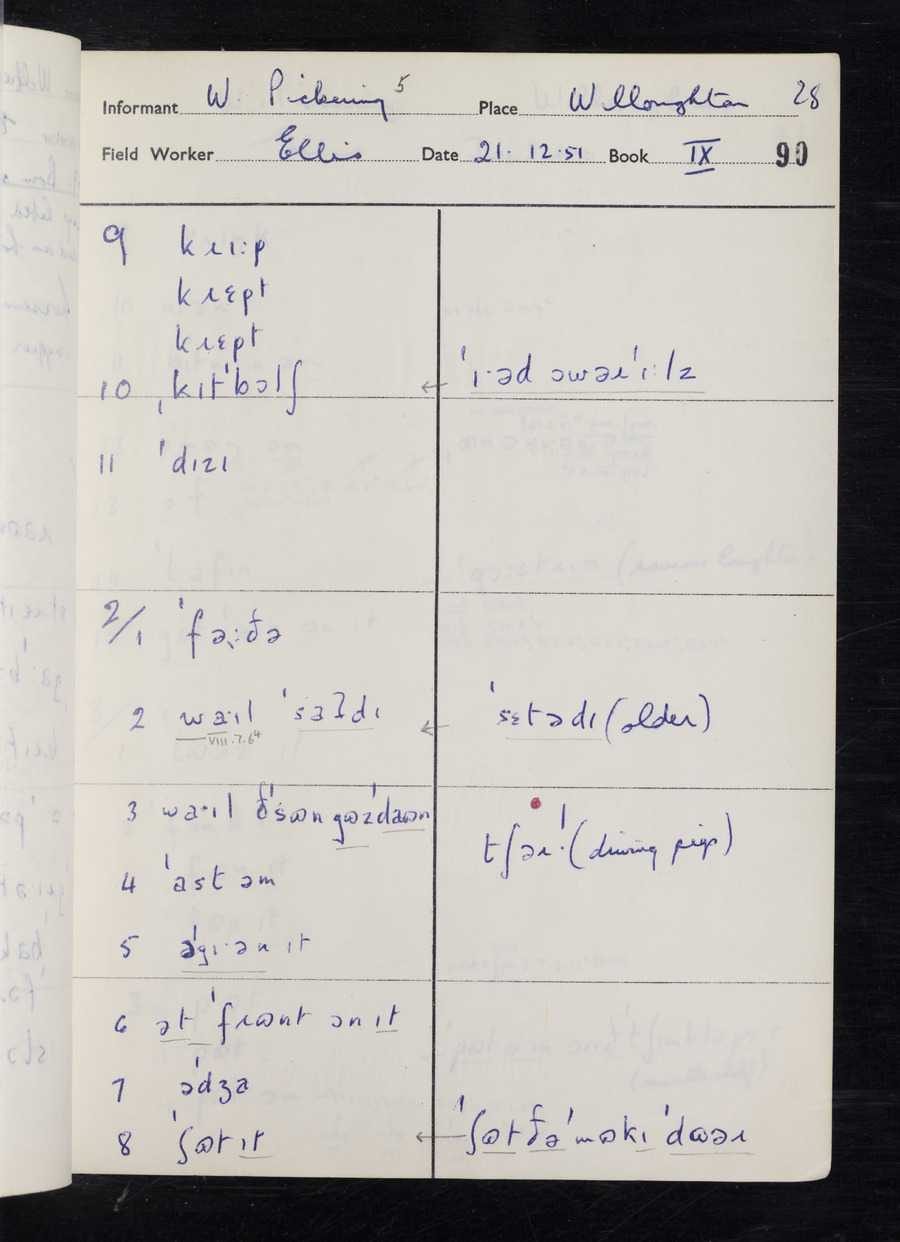 Informant W. Pickering 5 Place Willoughton 28
Field Worker Ellis Date 21. 12.51 Book IX 90
9 kɹɪ:p
kɹɛpt
kɹɛpt
10 ˌkɪt'bɔlʃ ← 'ɪ·əd ɔwəɹ'ɪ:lz
11 'dɪzɪ
2/1 'fə:ðə
2 wa·ɪl 'saʔdɪ ← 'sɛtədɪ (older)
VIII.7.6
3 wa·ɪl ð'sɷn gɷz'daɷn tʃəɹ! (driving pigs)
4 'ast əm
5 ə'gɪ·ən ɪt
6 ət 'fɹɷnt ən ɪt
7 'ədʒə
8 'ʃɷt ɪt ← 'ʃɷt ðə 'mɷkɪ 'dɷəɹ